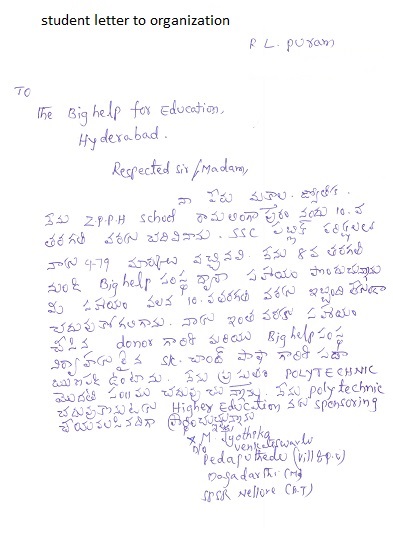 student letter to organization
R L. puram
TO
The Big help for Education,
Hyderabad.
Respected Sir/Madam,
నా పేరు మతాల. జ్యోతిక.
నేను Z.P.P.H School రామలింగా పురం నందు 10-వ
తరగతి వరకు చదివినాను. SSC పబ్లిక్ పరీక్షలలో
నాకు 479 మార్కులు వచ్చినవి. నేను 8వ తరగతి
నుండి Big help సంస్థ ద్వారా సహాయం పొందుచున్నాను
మీ సహాయం వలన 10-వ తరగతి వరకు ఇబ్బంది లేకుండా
చదువుకోగలిగాను. నాకు ఇంత వరకు సహాయం
చేసిన donor గారికి మరియు Big help సంస్థ
నిర్వాహకులైన SK. చాంద్ పాషా గారికి సదా
ఋణపడి ఉంటాను. నేను ప్రస్తుతం POLYTECHNIC
మొదటి సం॥ము చదువుచున్నాను. నేను polytechnic
చదువుకొనుటకు Higher Education నకు sponsoring
చేయవలసినదిగా ప్రార్థించుచున్నాను
ఇట్లు,
x M. Jyothika
D/o Venkateswarlu
Pedaputhedu (Vill & P.O)
Dagadarthi (M)
SPSR Nellore (D.T)